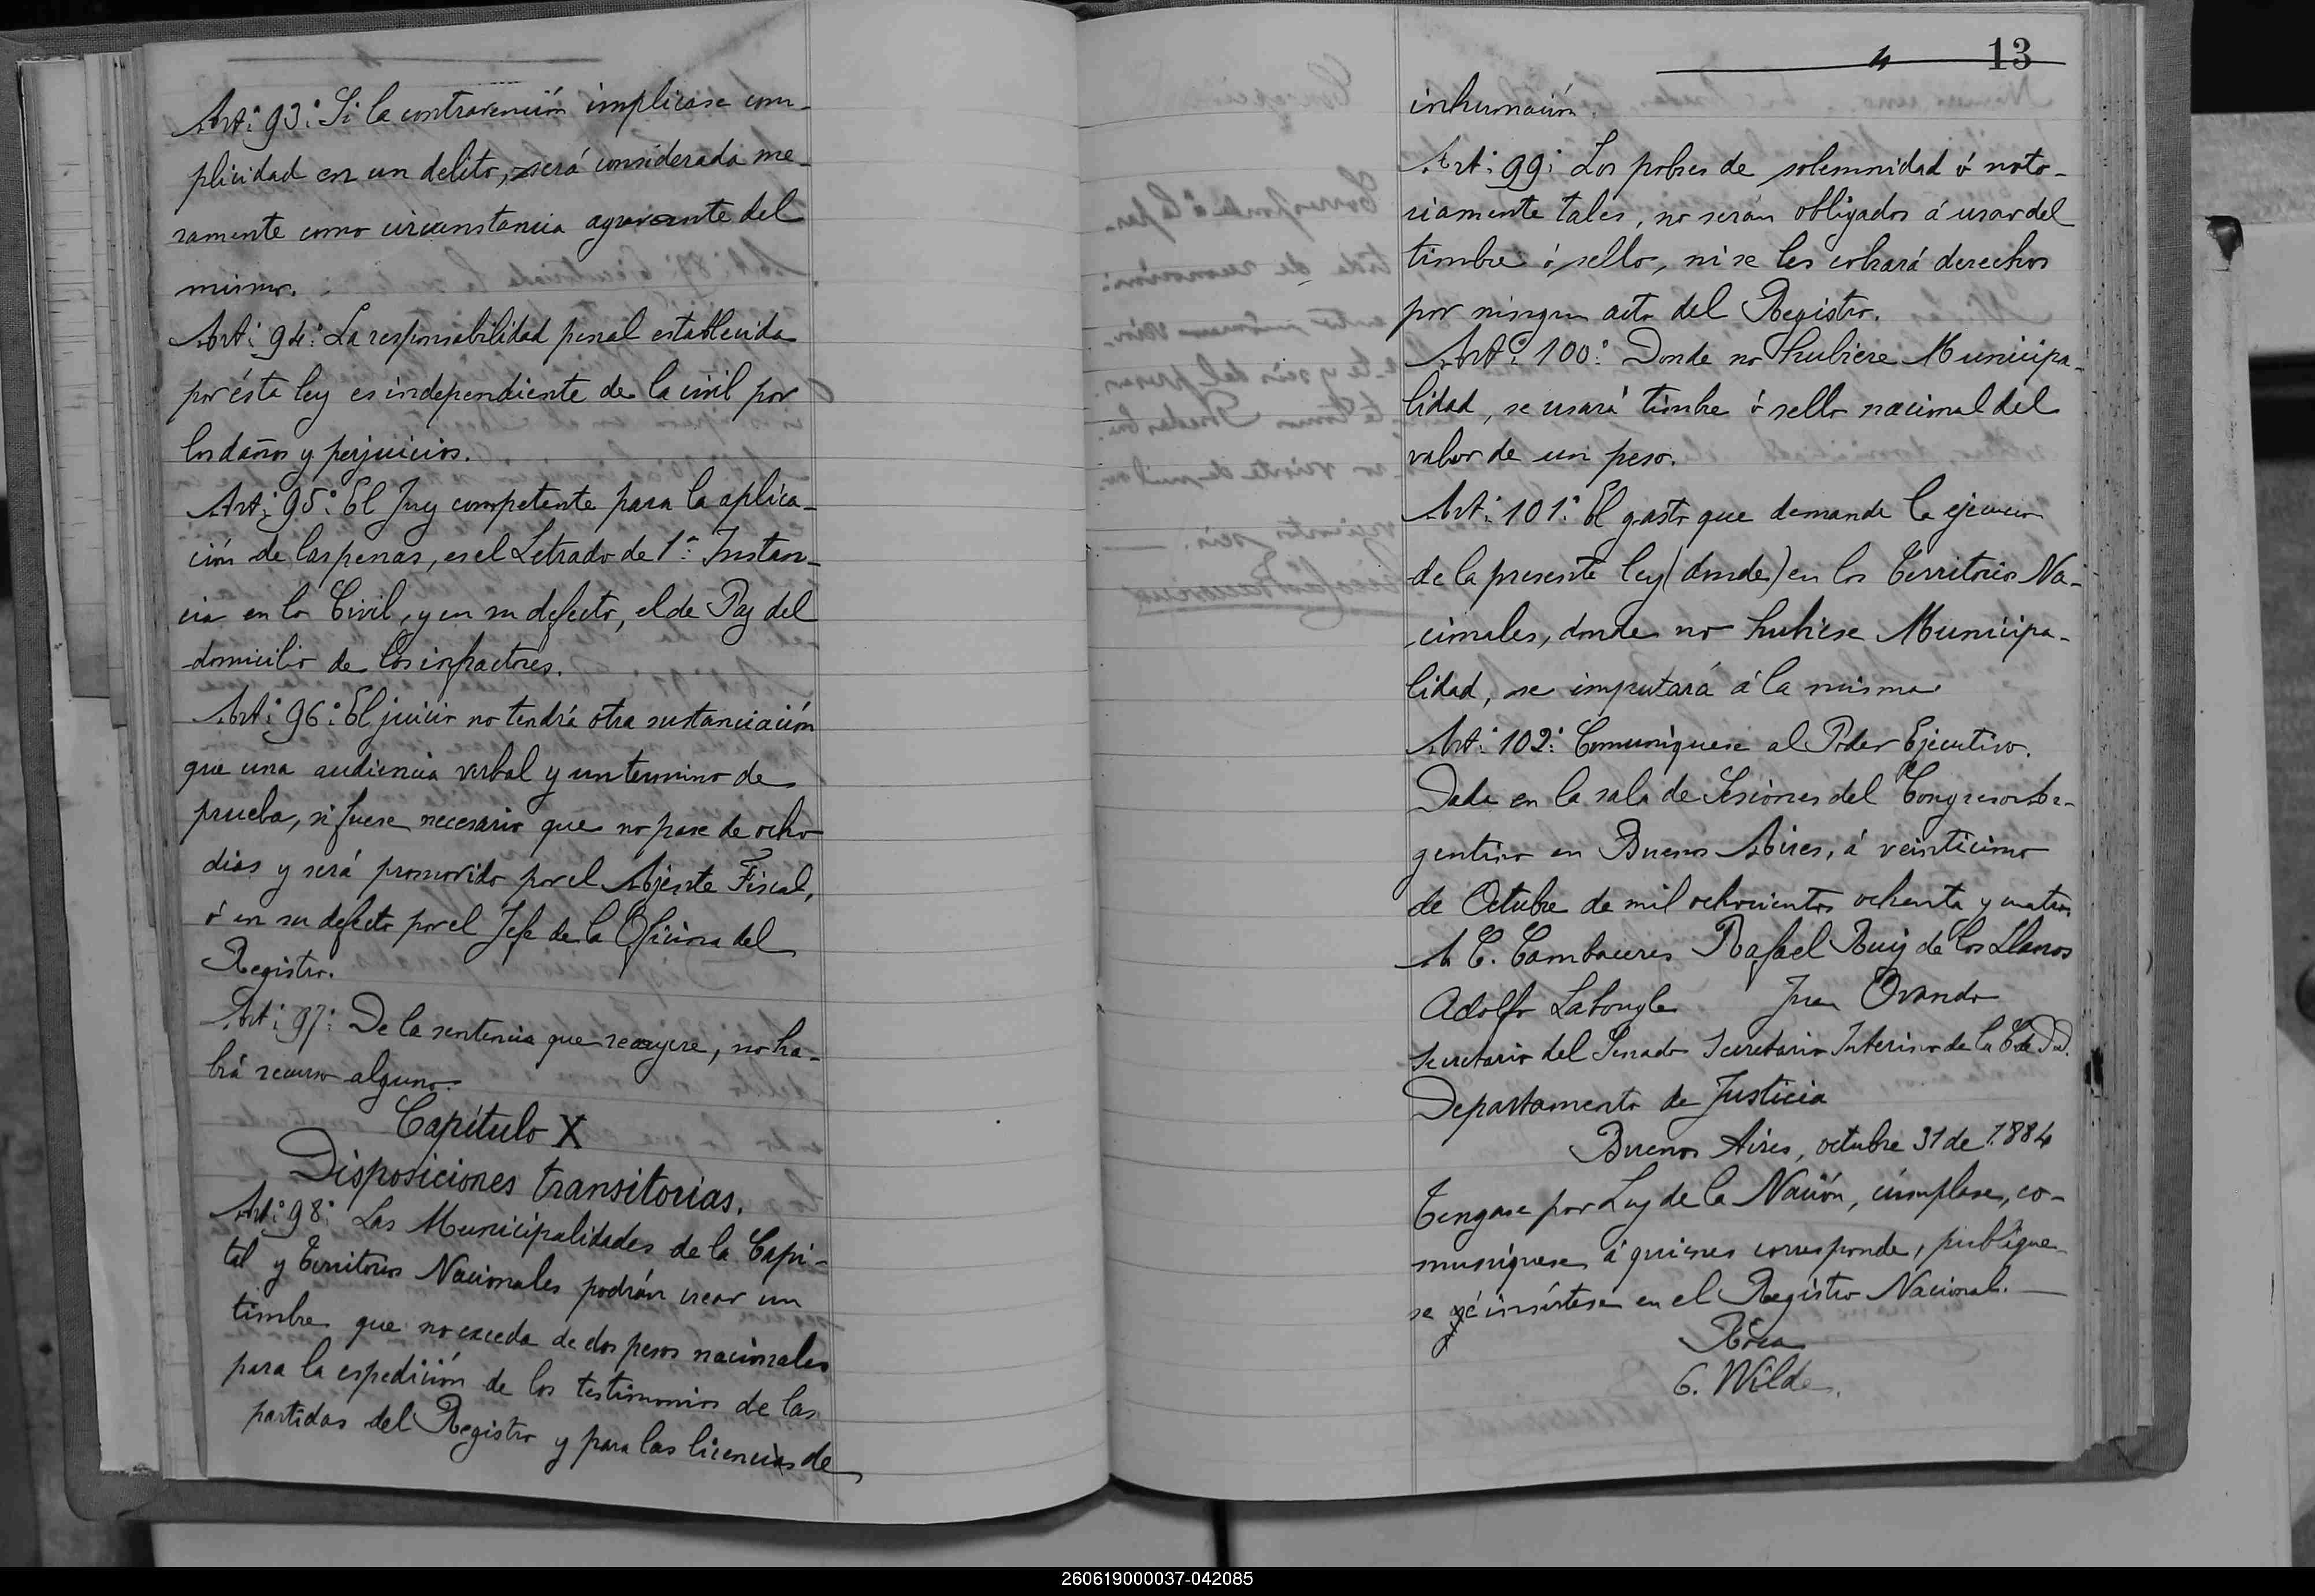 Art.° 93.° Si la contravención implicase com-
plicidad en un delito, será considerada me-
ramente como circunstancia agravante del
mismo.
Art.° 94.° La responsabilidad penal establecida
por ésta ley es independiente de la civil por
los daños y perjuicios.
Art.° 95.° El Juez competente para la aplica-
ción de las penas, es el Letrado de 1.ª Instan-
cia en lo Civil, y en su defecto, el de Paz del
domicilio de los infractores.
Art.° 96.° El juicio no tendrá otra sustanciación
que una audiencia verbal y un termino de
prueba, si fuese necesario que no pase de ocho
dias y será promovido por el Ajente Fiscal,
ó en su defecto por el Jefe de la Oficina del
Registro.
Art.° 97.° De la sentencia que recayere, no ha-
brá recurso alguno.
Capítulo X
Disposiciones transitorias.
Art.° 98.° Las Municipalidades de la Capi-
tal y Territorios Nacionales podrán crear un
timbre que no exceda de dos pesos nacionales
para la espedición de los testimonios de las
partidas del Registro y para las licencias de
13
inhumación.
Art.° 99.° Los pobres de solemnidad ó noto-
riamente tales, no serán obligados á usar del
timbre ó sello, ni se les cobrará derechos
por ningun acto del Registro.
Art.° 100.° Donde no hubiere Municipa-
lidad, se usará timbre ó sello nacional del
valor de un peso.
Art.° 101.° El gasto que demande la ejecucion
de la presente ley (donde) en los Territorios Na-
cionales, donde no hubiese Municipa-
lidad, se imputará á la misma
Art.° 102.° Comuníquese al Poder Ejecutivo.
Dada en la sala de Sesiones del Congreso Ar-
gentino en Buenos Aires, á veinticinco
de Octubre de mil ochocientos ochenta y cuatro
A. C. Cambaceres Rafael Ruiz de los Llanos
Adolfo Labougle Juan Ovando
Secretario del Senado Secretario Interino de la C. de D.D.
Departamento de Justicia
Buenos Aires, octubre 31 de 1884
Tengase por Ley de la Nación, cúmplase, co-
muníquese á quienes corresponde, publíque-
se é insértese en el Registro Nacional.
Roca
E. Wilde.
260619000037-042085